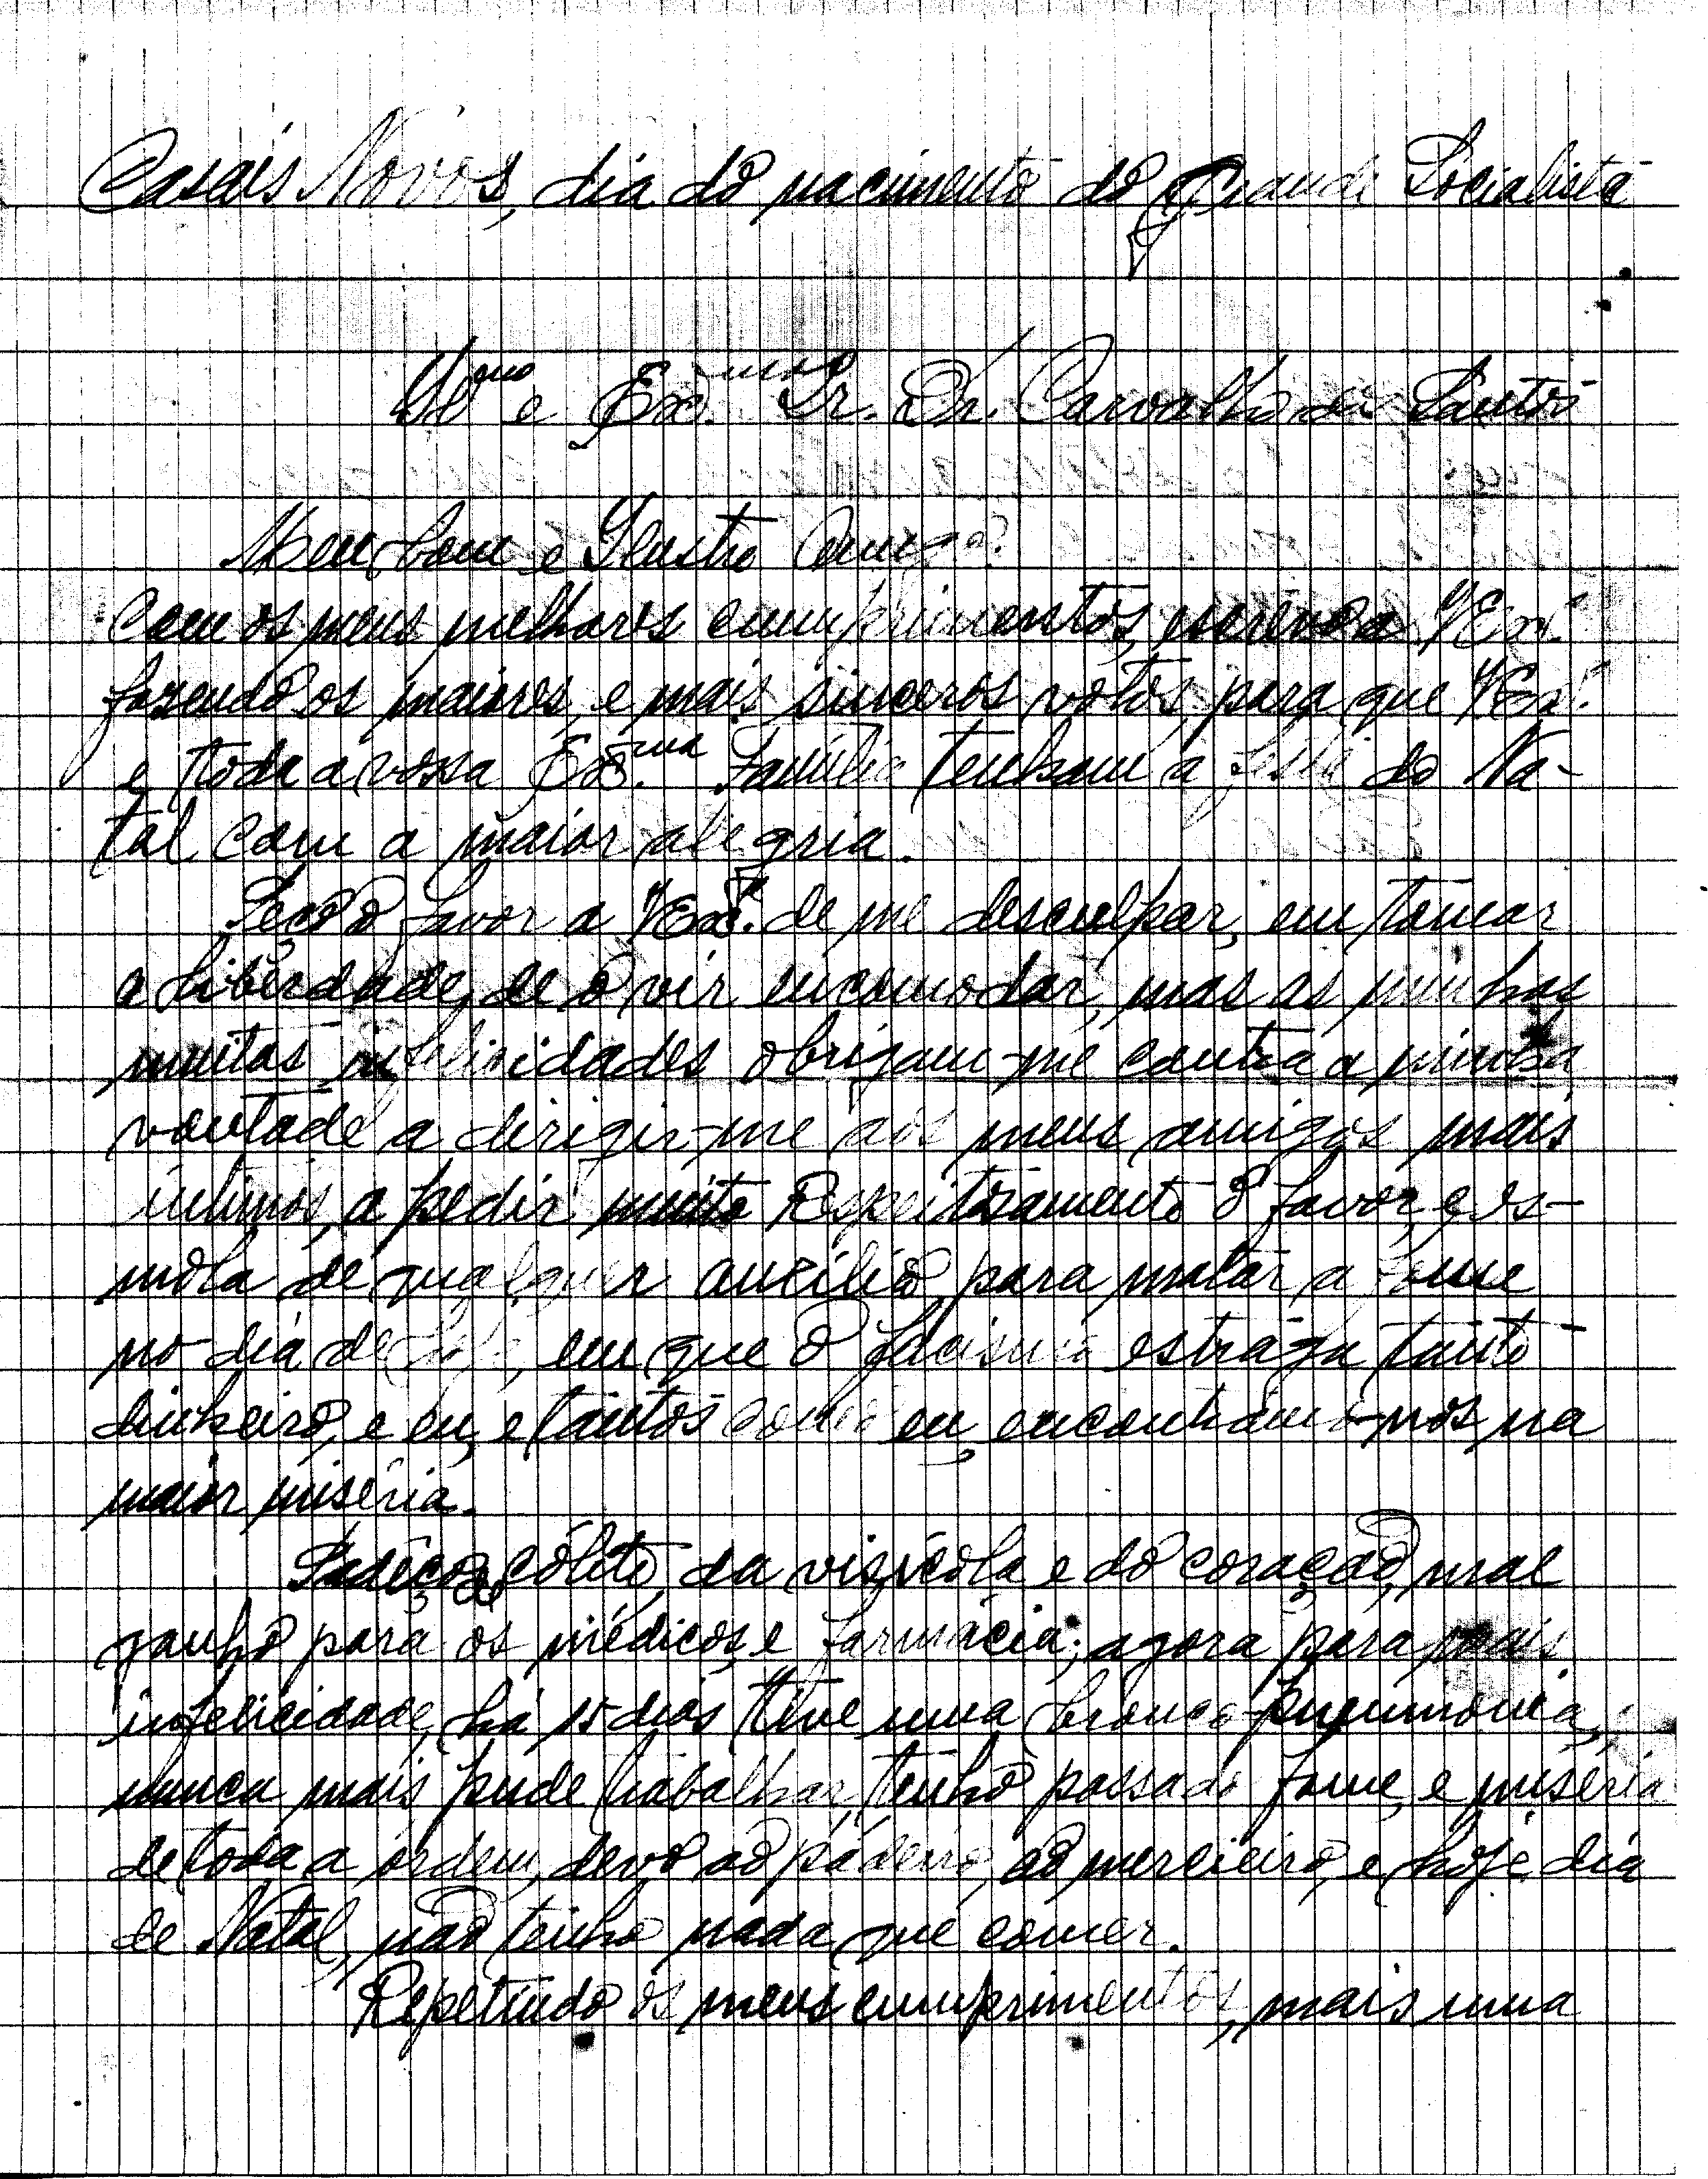 Casais Novos, dia do nacimento do Grande Socialista
Il.mo e Ex.mo Sr. Dr. Carvalho dos Santos
Meu bom e Ilustre Amigo
Com os meus melhores cumprimentos, escrevo a V Ex.ª
fazendo os maiores, e mais sinceros votos, para que V Ex.ª
e toda a vossa Ex.ma Família tenham a festa do Na-
tal com a maior alegria.
Peço o favor a V Ex.ª de me desculpar, em tomar
a liberdade, de o vir encomodar, mas as minhas
muitas infelicidades obrigam-me contra a minha
vontade a dirigir-me aos meus amigos mais
intimos, a pedir muito Respeitosamente o favor, e es-
mola de qualquer auxílio, para matar a fome
no dia de hoje, em que o facismo estraga tanto
dinheiro, e eu, e tantos como eu, encontramo-nos, na
maior miséria.
Padeço de cólite, da visicola e do coração, mal
ganho para os médicos, e farmácia; agora para mais
infelicidade, há 15 dias tive uma bronco-pneumonia,
nunca mais pude trabalhar, tenho passado fome, e miséria
de toda a ordem, devo ao padeiro, ao mercieiro, e hoje dia
de Natal, não tenho nada que comer.
Repetindo os meus cumprimentos, mais uma